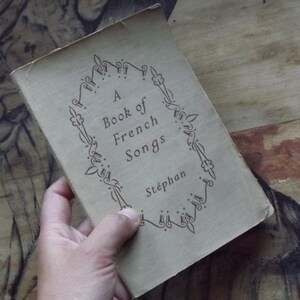 A
Book of
French
Songs
Stéphan